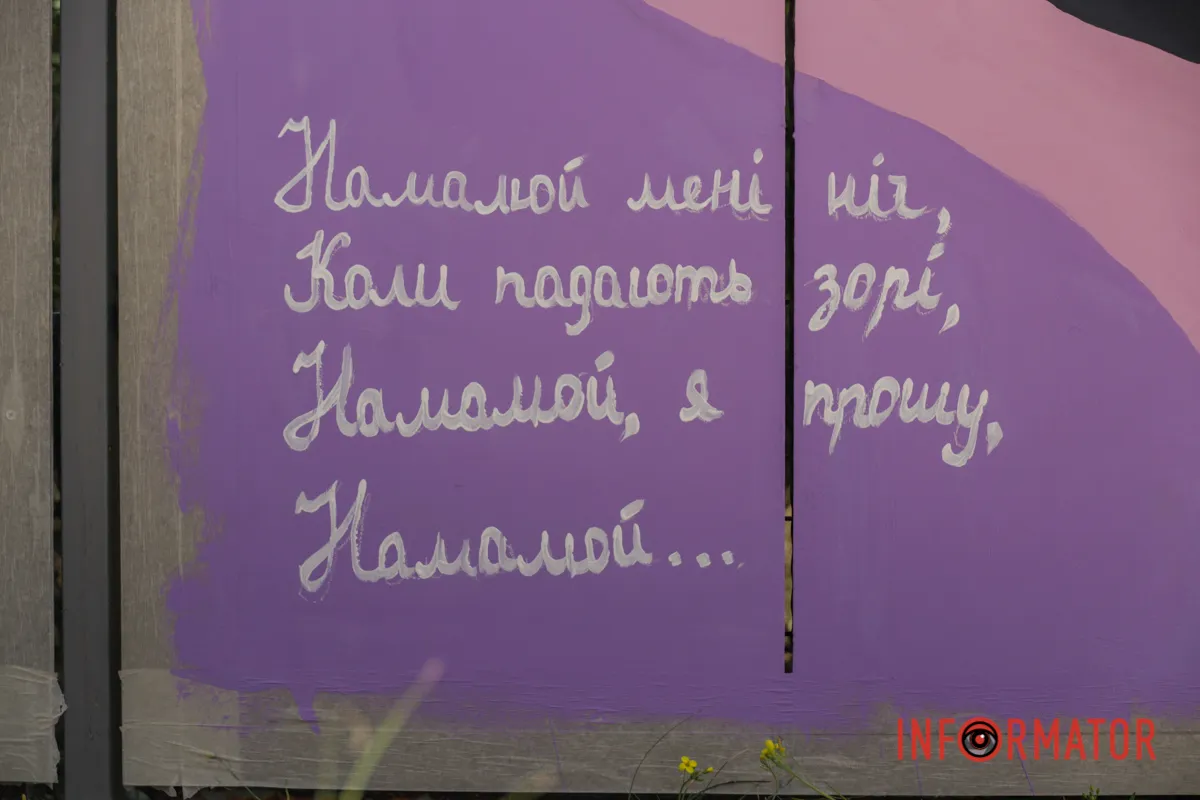 Намалюй мені ніч,
Коли падають зорі,
Намалюй, я прошу,
Намалюй...
INFORMATOR